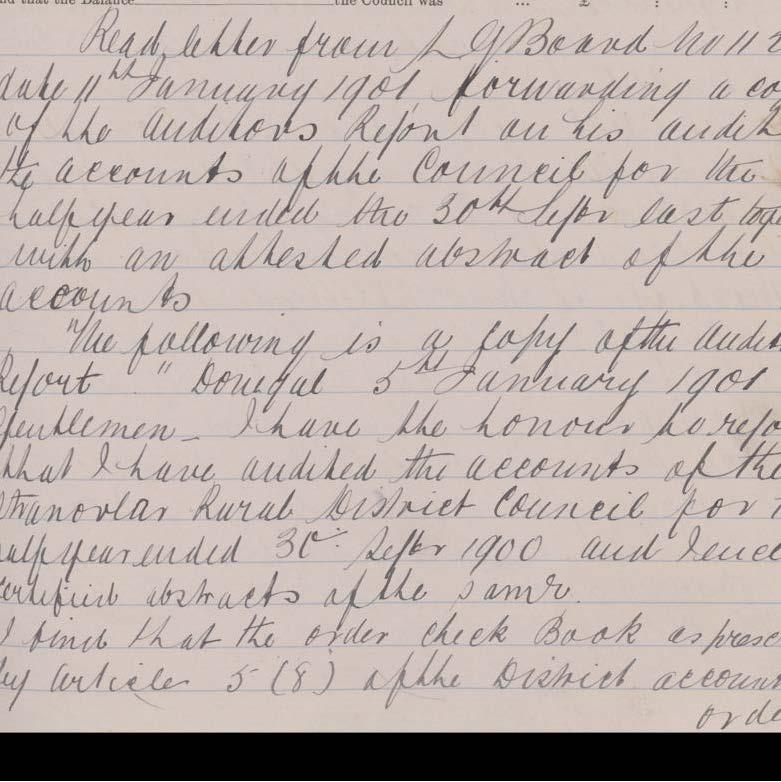 nd that the Balance the Council was ... £ : :
Read letter from L G Board No 112
date 11th January 1901 forwarding a co
of the Auditors Report on his audit
the accounts of the Council for the
half year ended the 30th Septr last toge
with an attested abstract of the
accounts
"The following is a copy of the Audit
Report " Donegal 5th January 1901
Gentlemen _ I have the honour to repo
that I have audited the accounts of the
Stranorlar Rural District Council for
half year ended 30th Septr 1900 and I enc
certified abstracts of the same.
I find that the order check Book as presc
by Article 5 (8) of the District account
orde